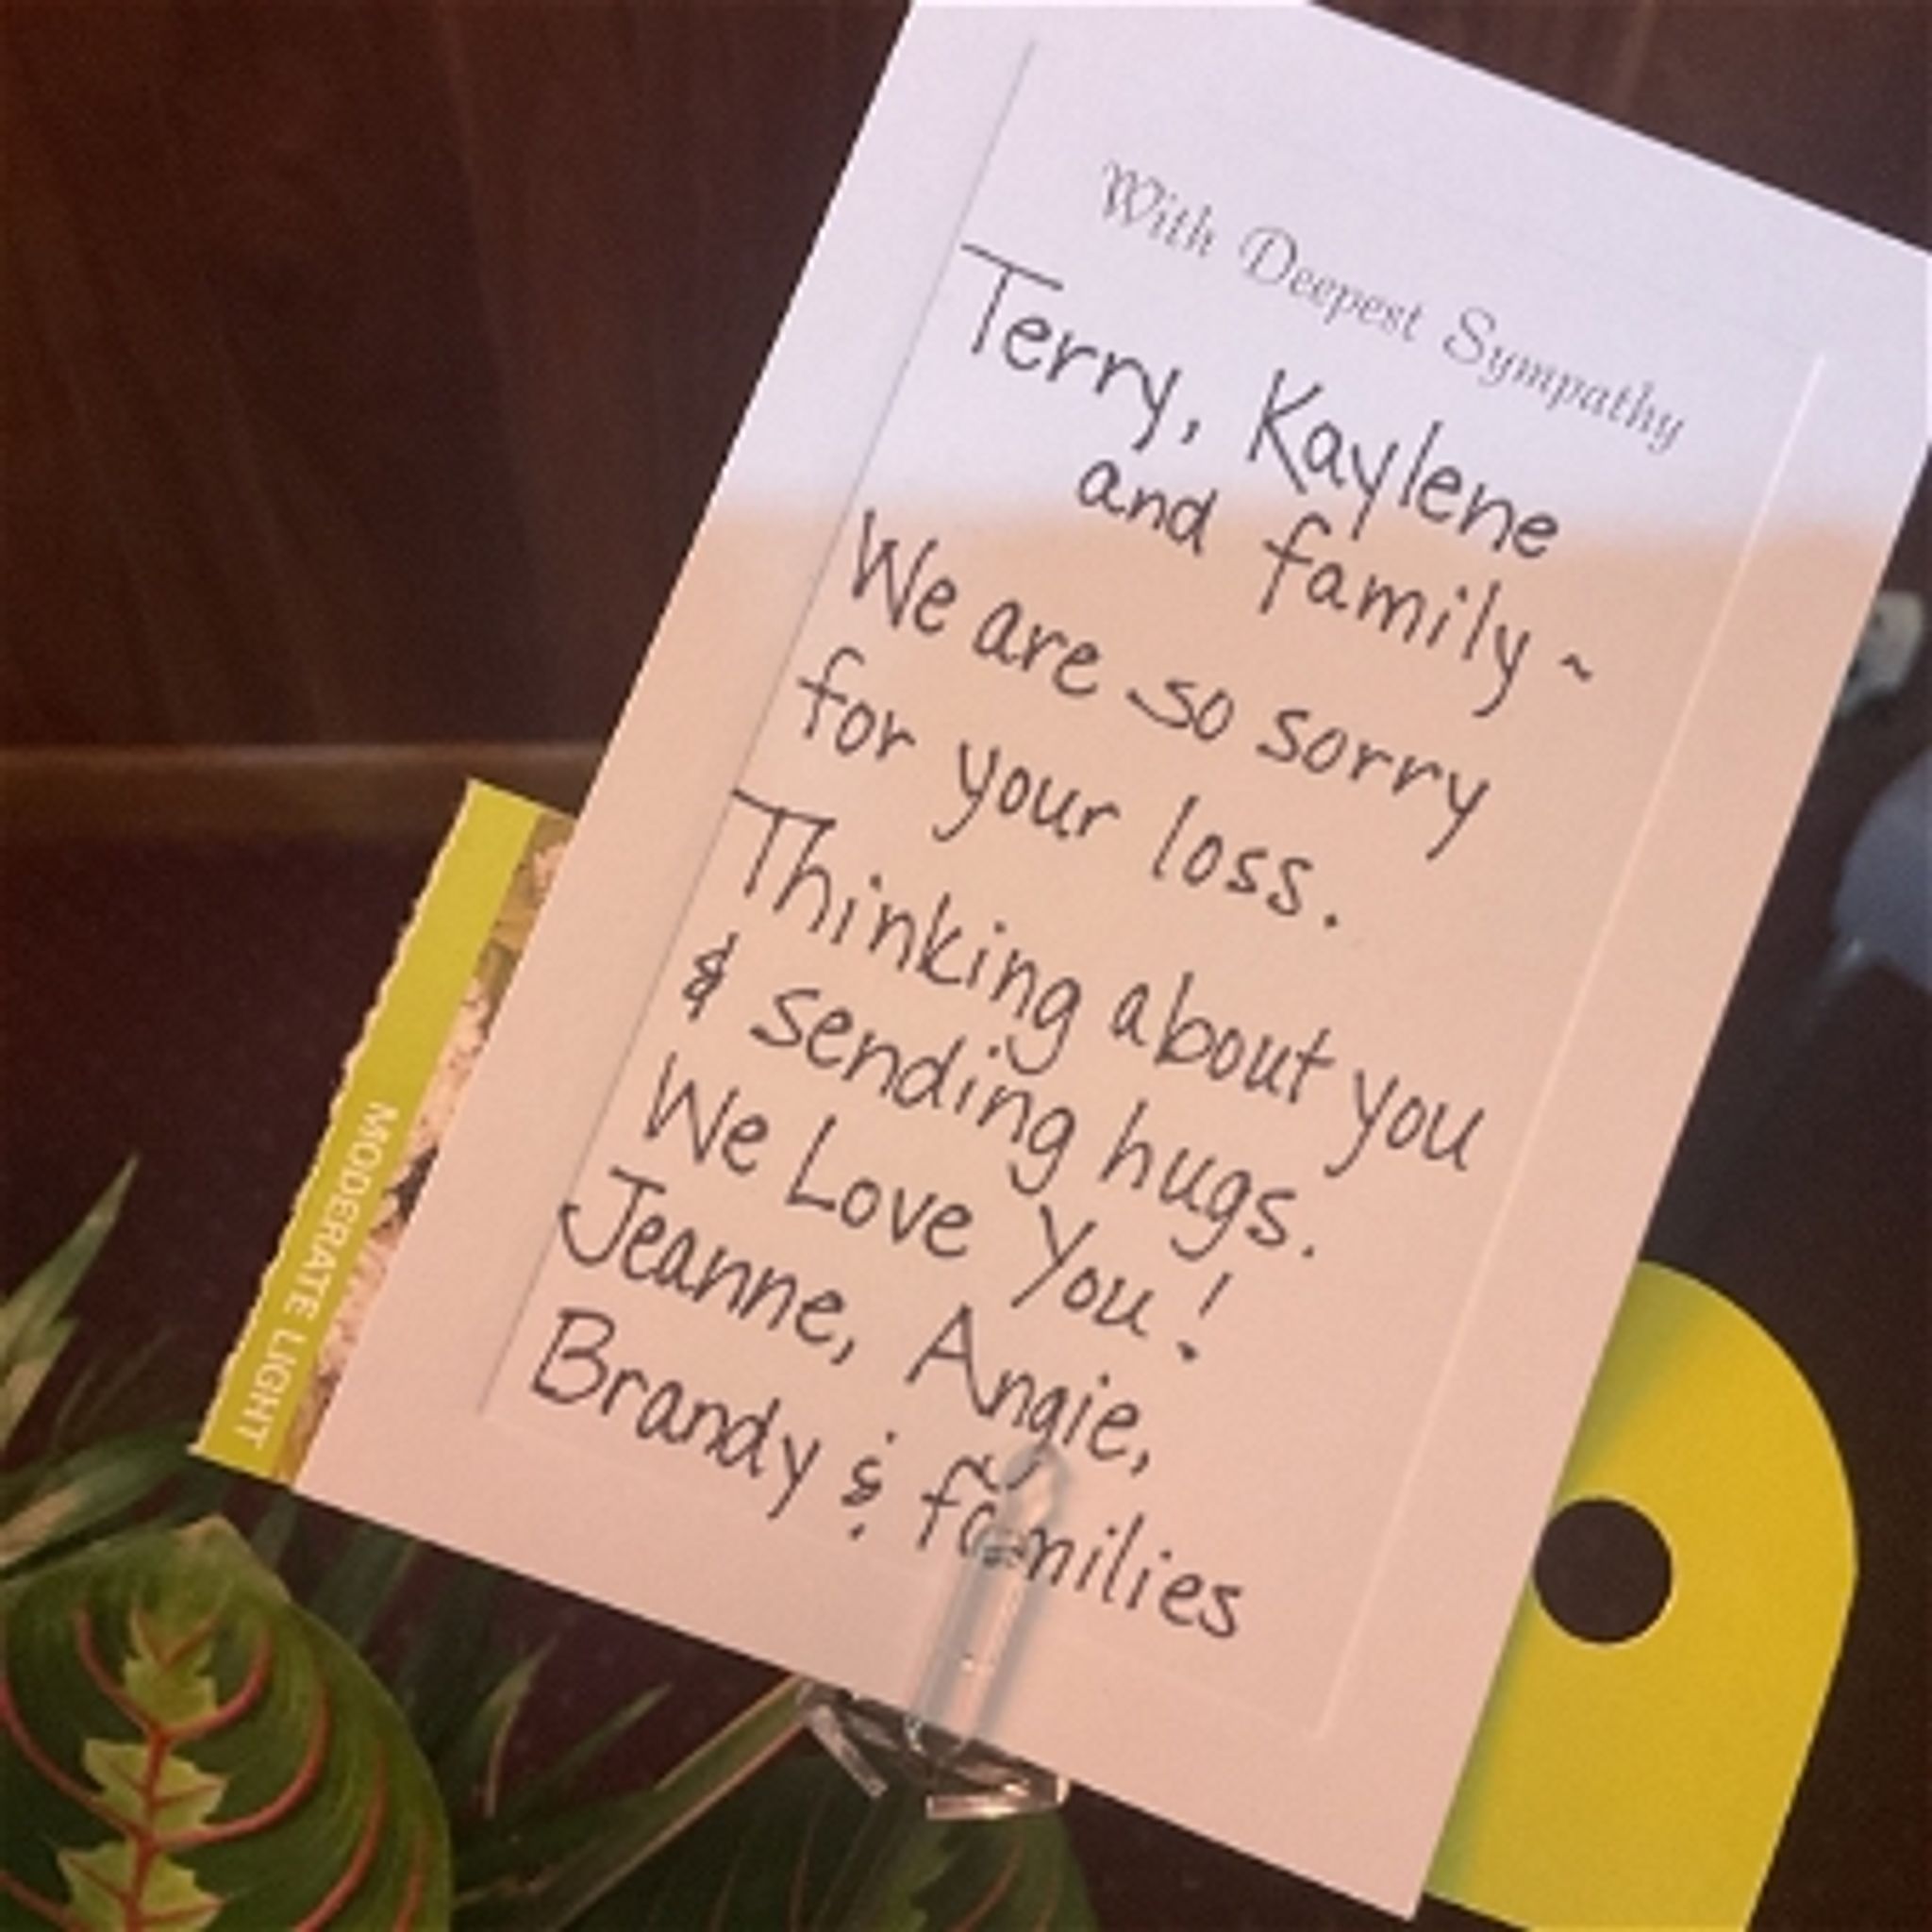 With Deepest Sympathy
Terry, Kaylene
and family ~
We are so sorry
for your loss.
Thinking about you
& sending hugs.
We Love You!
Jeanne, Angie,
Brandy & families
MODERATE LIGHT